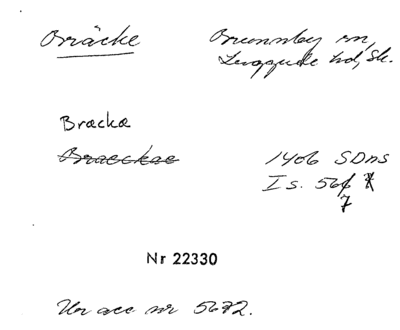 Bräcke Brunnby sn,
Luggude hd, Sk.
Brackæ
Braeckae 1406 SDns
I s. 567
Nr 22330
Ur acc nr 5672.